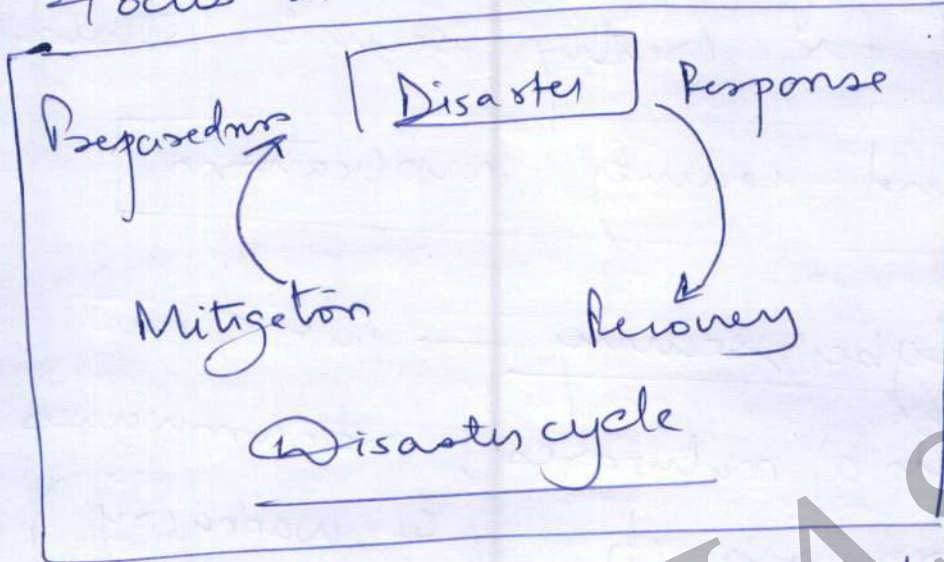 Focus
Preparedness Disaster Response
Mitigation Recovery
Disaster cycle
IAS